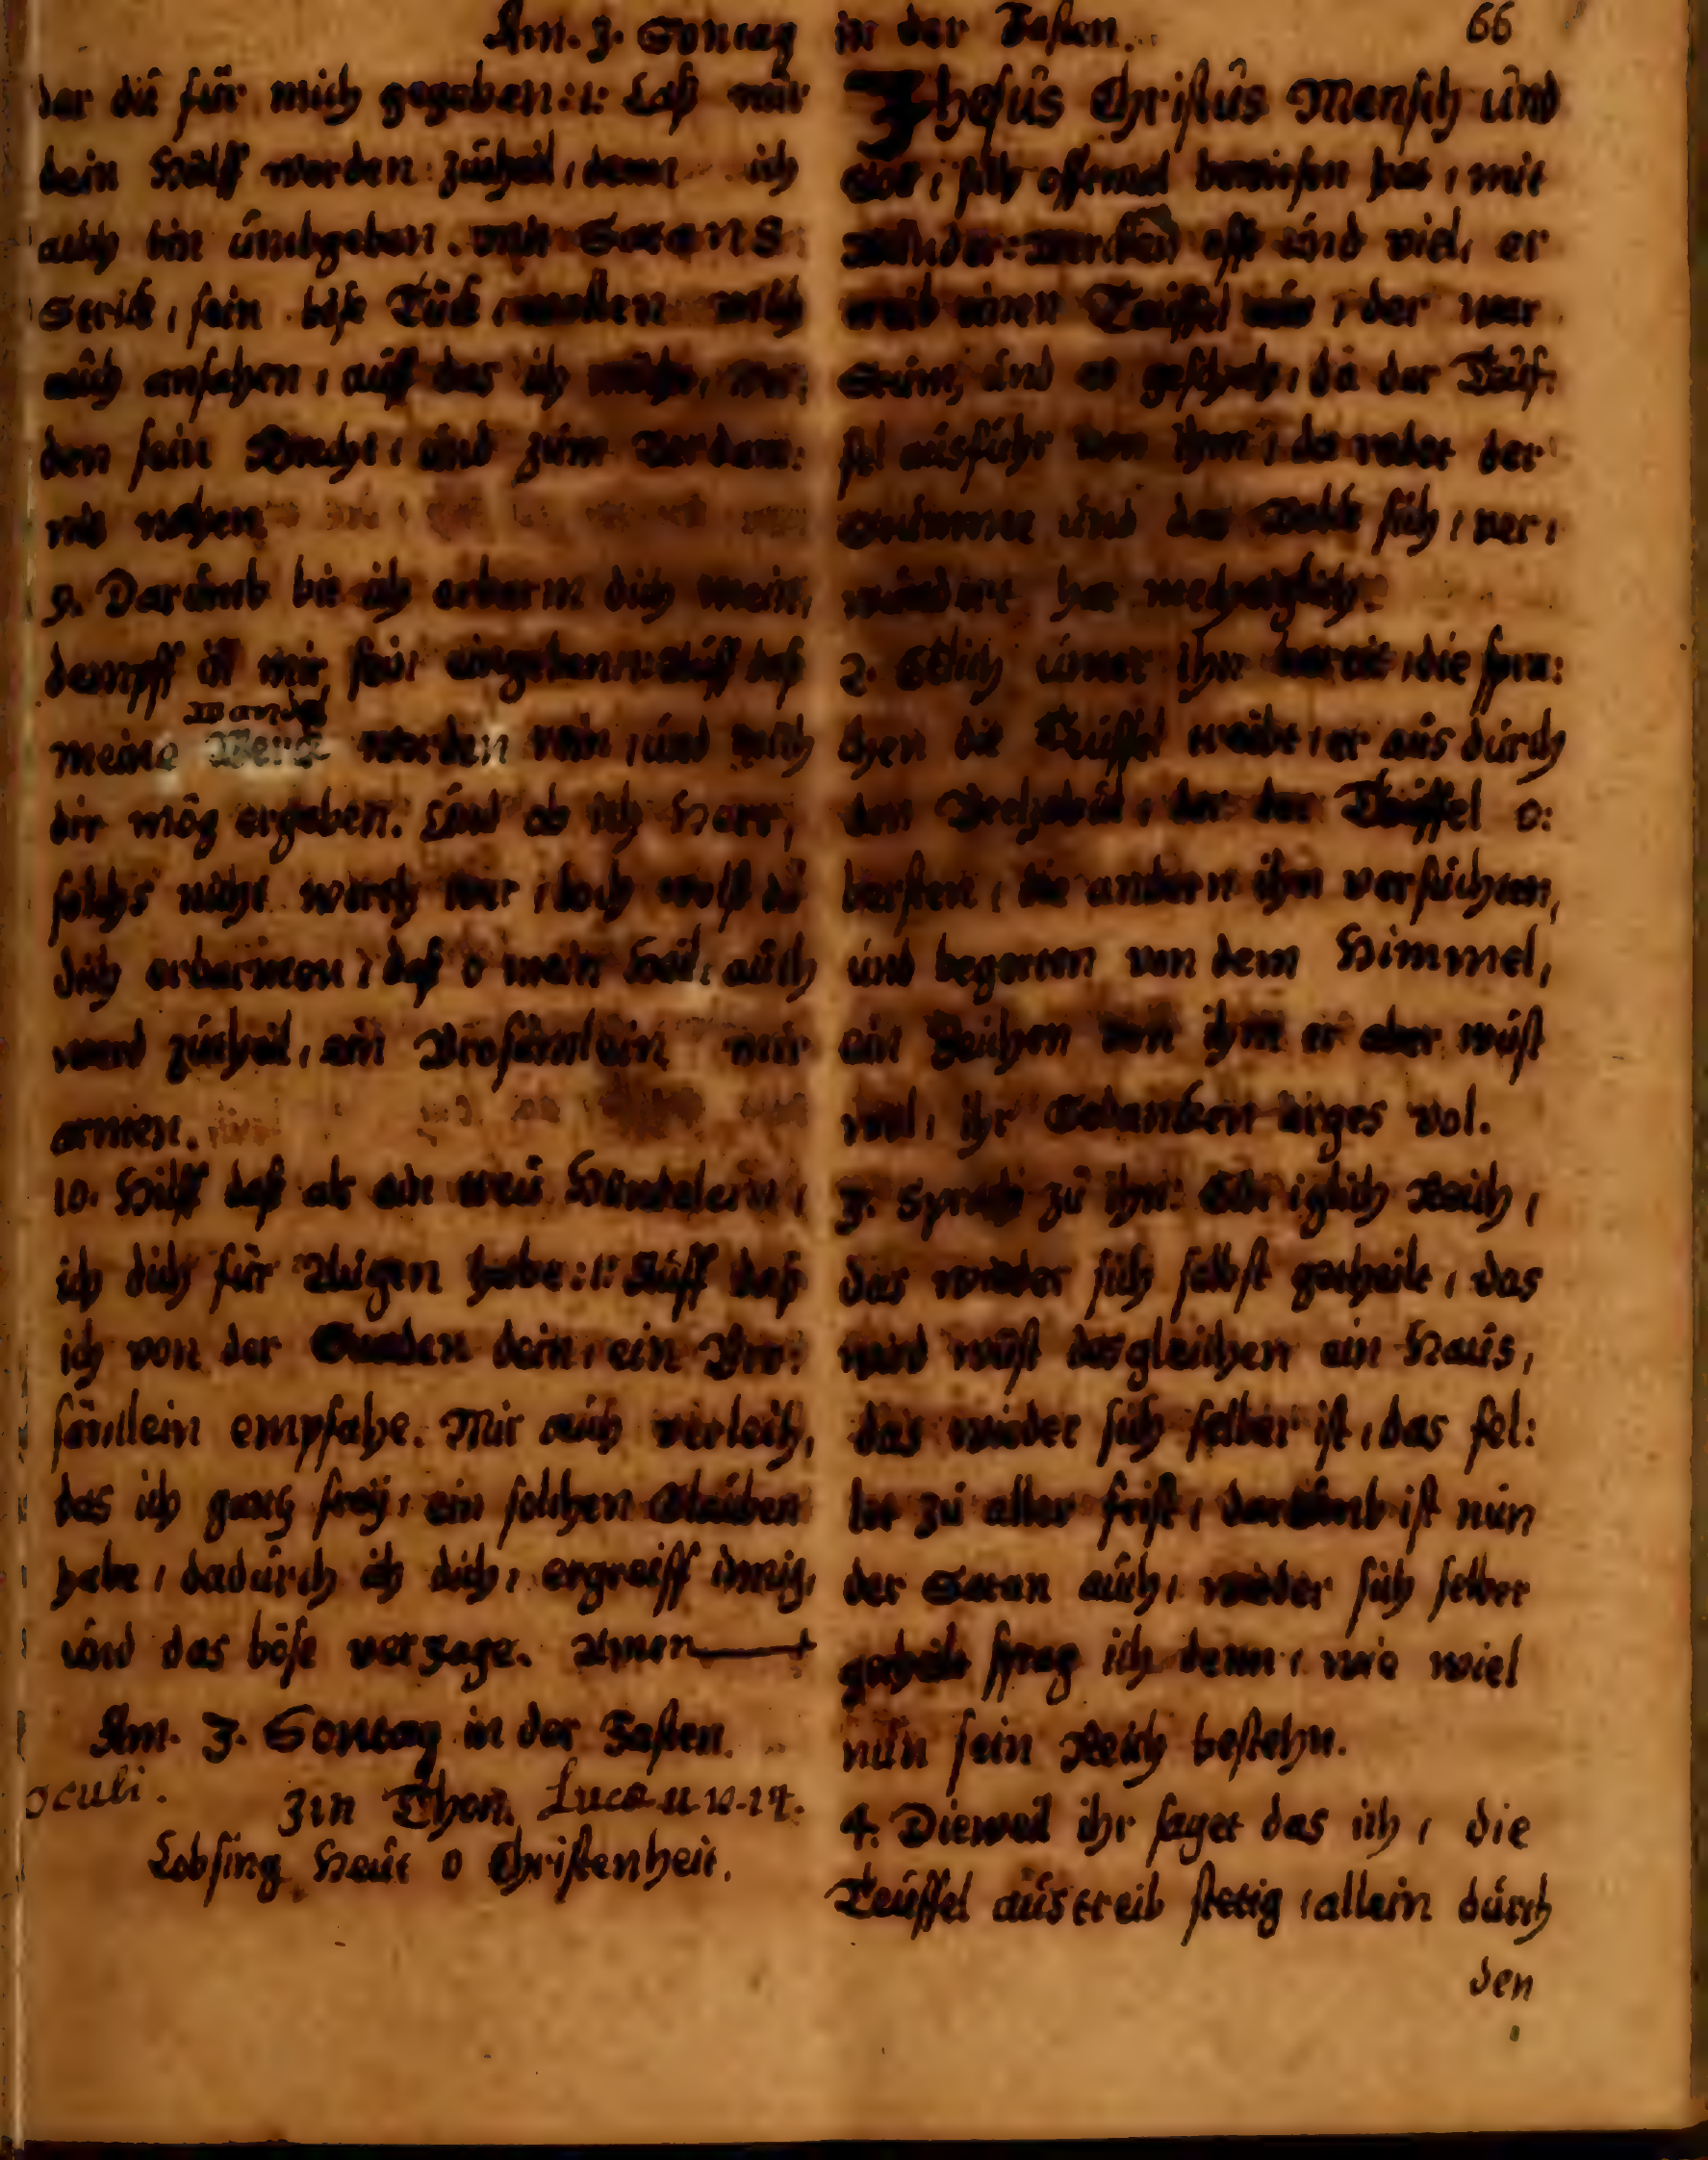 Am. 3. Sontag in der Fasten. 66
der du für mich gegeben :1: Laß mir
dein Hülff werden zutheil, denn ich
auch bin ümbgeben. mit Satans
Strick, sein böse Tück, wollen mich
auch anfahen, auff das ich möchte, wer:
den sein Knecht, und zum Verdam:
nis nahen.
9. Darümb bit ich erbarm dich mein,
dempff öl mir fein eingeben :1: Auff daß
Wandel
meine werden rein, und mich
dir mög ergeben. Und ob ich Herr,
solchs nicht werth wer, doch wolst du
dich erbarmen, daß o mein Heil, auch
werd zutheil, ein Brosämlein mir
armen.
10. Hilff daß als ein treu Hündelein,
ich dich für Augen habe :1: Auff daß
ich von der Gnaden dein, ein Bro:
sämlein empfahe. Mir auch verleih,
das ich gantz frey, ein solchen Glauben
habe, dadürch ich dich, ergreiff innig,
und das böse verzage. Amen
Am. 3. Sontag in der Fasten.
oculi.
Im Thon. Luca 11
Lobsing Heüt o Christenheit.
Jhesus Christus Mensch und
Got, sich offtmal bewiesen hat, mit
Wunder-Wercken offt und viel, er
treib einen Teüffel aus, der war
Stüm, und es geschah, da der Teüf:
fel ausfuhr von ihm, da redet der
Stumme und das Volck sich, ver:
wundert hat
2. Etlich unter ihn die spra:
chen die Teüffel treibt er aus dürch
den Beelzebub, der der Teüffel o:
bersten, die andern ihn versuchten,
und begerten von dem Himmel,
ein Zeichen von ihm er aber wust
wol, ihr Gedancken arges vol.
3. Sprach zu ihn: Ein iglich Reich,
das wieder sich selbst getheilt, das
wird wüst desgleichen ein Haus,
das wieder sich selber ist, das fel:
let zu aller frist, darümb ist nun
der Satan auch, wieder sich selber
getheilt frag ich denn, wie wiel
nun sein Reich bestehn.
4. Dieweil ihr saget das ich, die
Teüffel austreib stetig, allein dürch
den